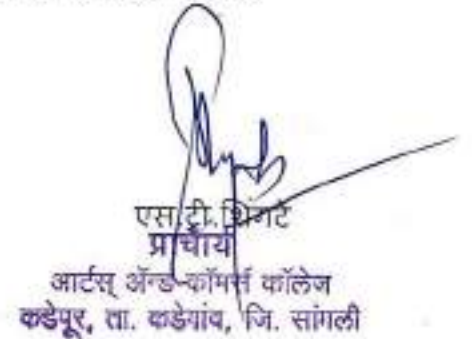 एस.टी. शिंगटे
प्राचार्य
आर्टस् ॲन्ड कॉमर्स कॉलेज
कडेपूर, ता. कडेगांव, जि. सांगली